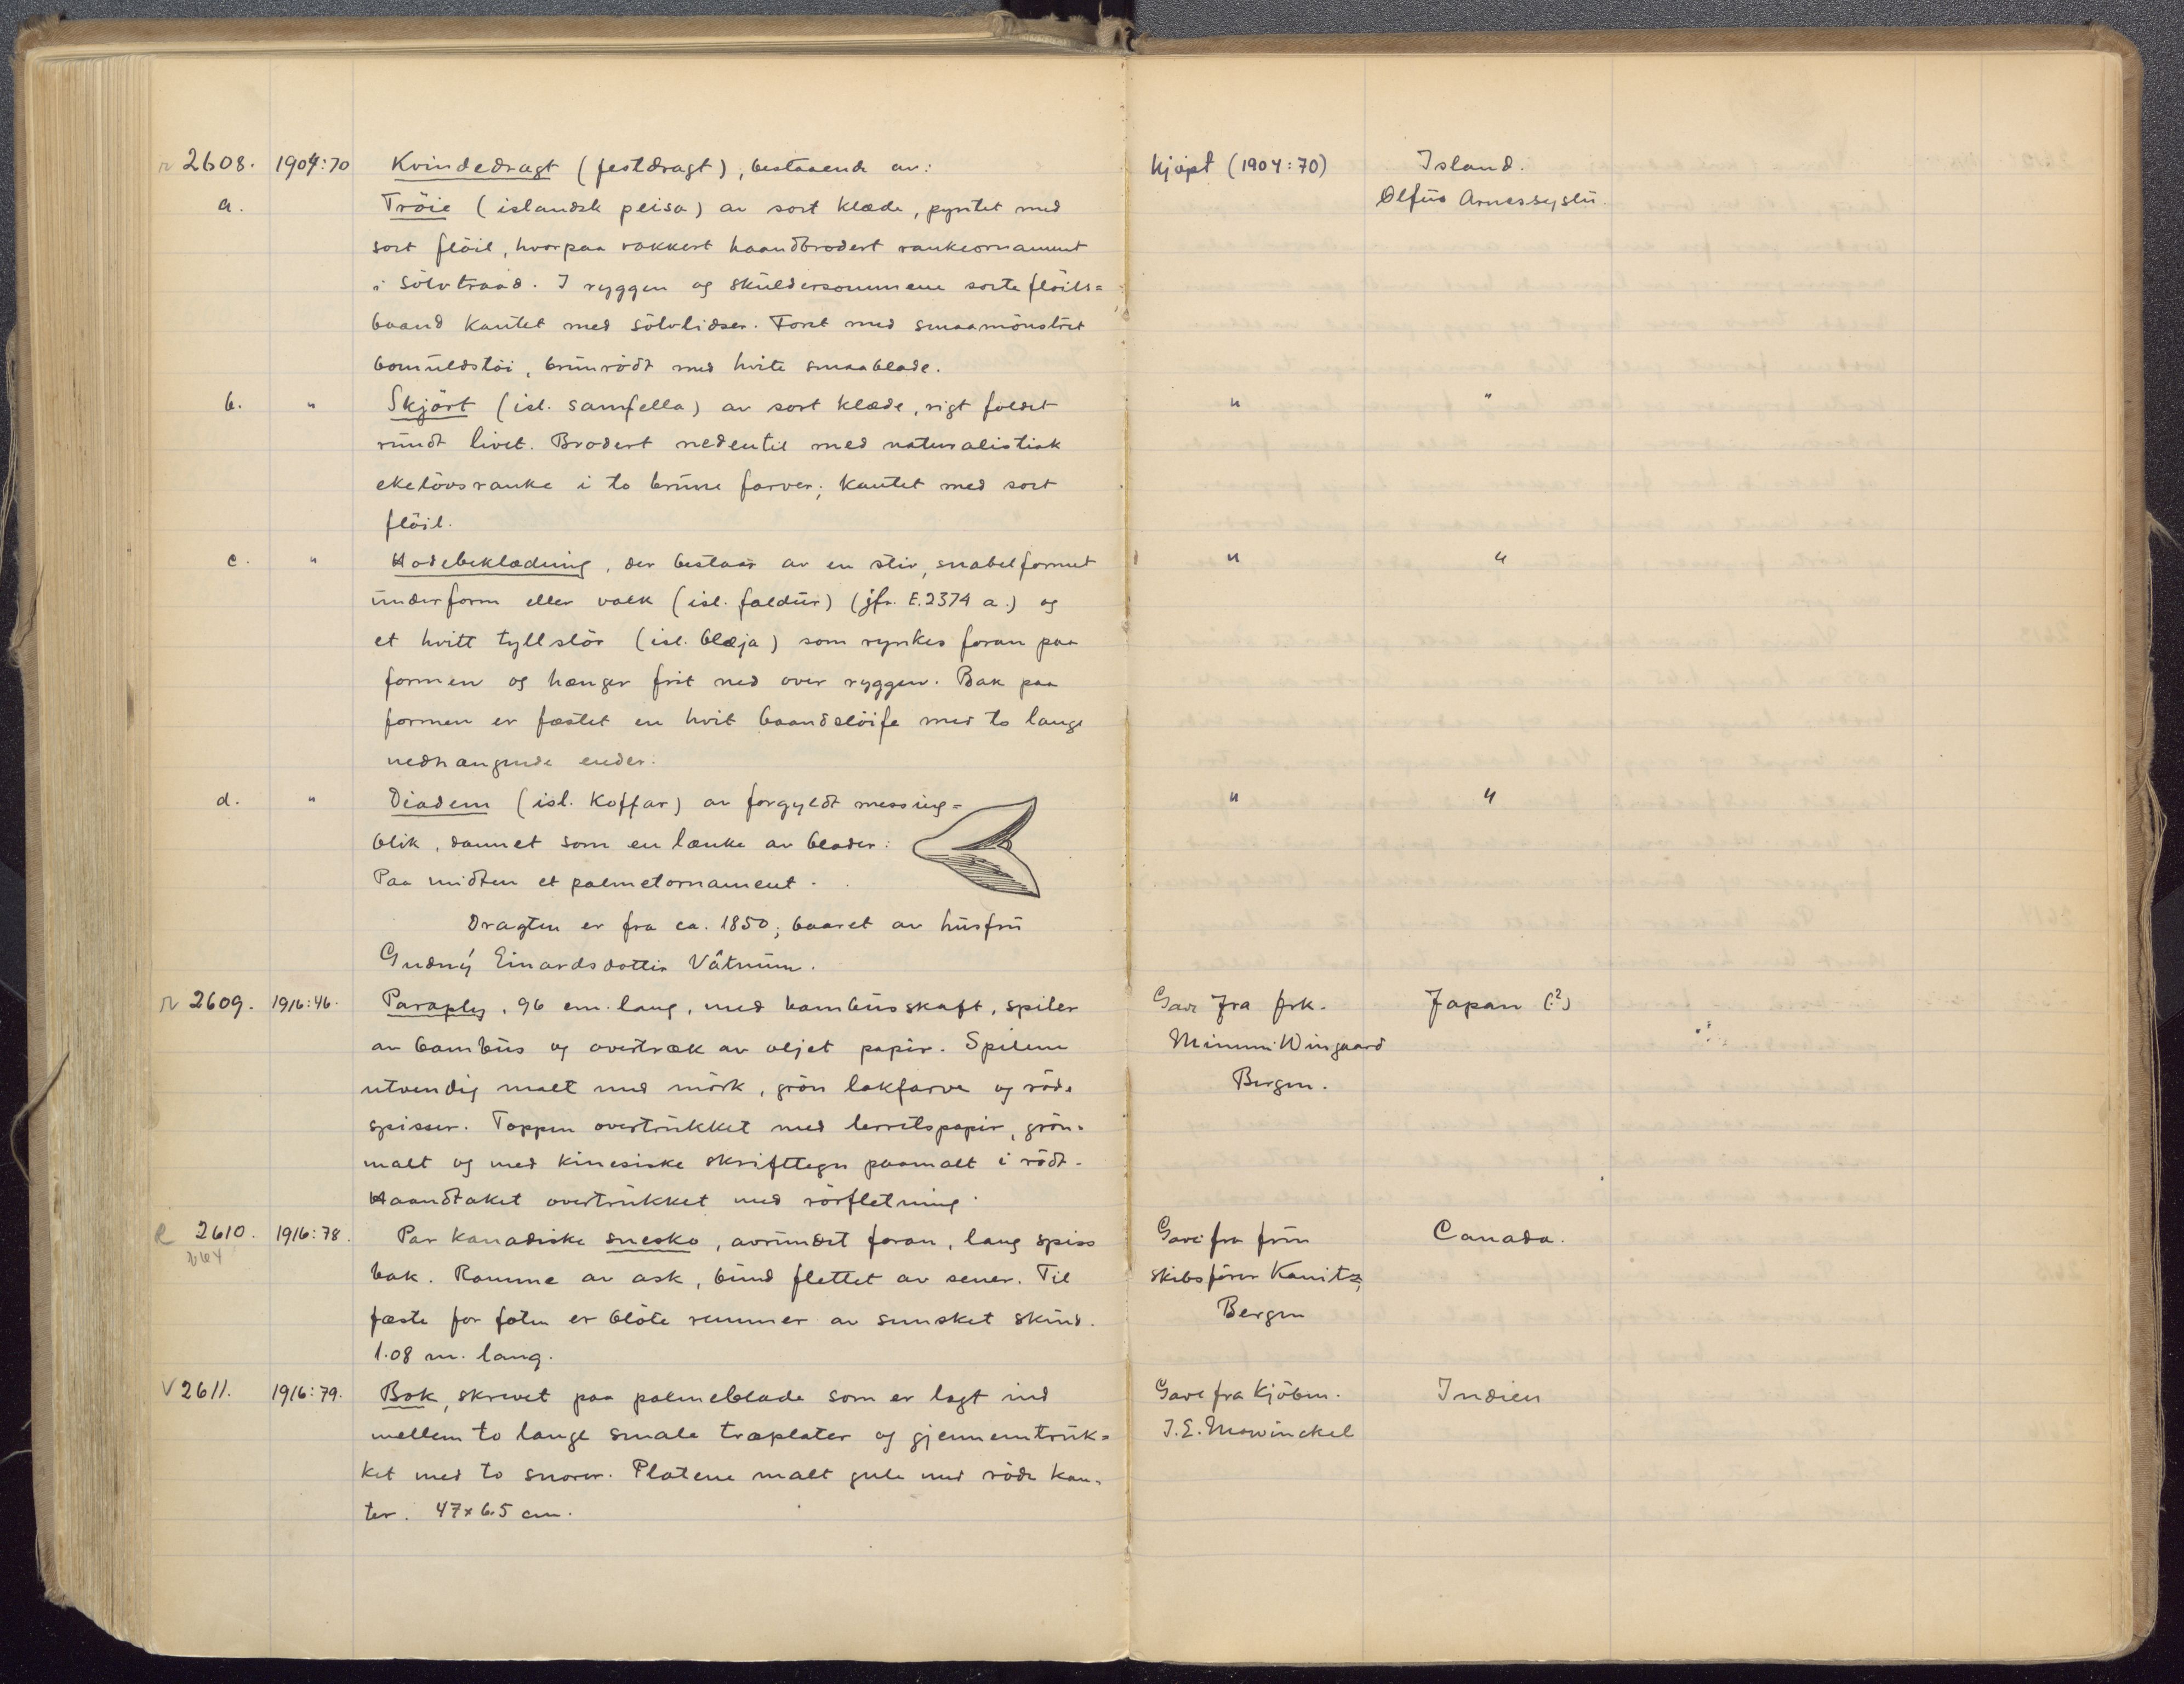 r 2608. 1904:70 Kvindedragt (festdragt), bestaaende av: Kjöpt (1904:70) Island.
a. Tröie (islandsk peisa) av sort klæde, pyntet med Olfus Arnessyslu.
sort flöil, hvorpaa vakkert haandbrodert rankeornament
i sölvtraad. I ryggen og skuldersommene sorte flöils=
baand kantet med sölvlidser. Foret med smaamönstret
bomuldstöi, brunrödt med hvite smaablade.
b. " Skjört (isl. samfella) av sort klæde, rigt foldet " "
rundt livet. Brodert nedentil med naturalistisk
ekelövsranke i to brune farver; kantet med sort
flöil.
c. " Hodebeklædning, der bestaar av en stiv, snabelformet " "
underform eller valk (isl. faldur) (jfr. E.2374 a.) og
et hvitt tyllslör (isl. blæja) som rynkes foran paa
formen og hænger frit ned over ryggen. Bak paa
formen er fæstet en hvit baandslöife med to lange
nedhængende ender.
d. " Diadem (isl. Koffar) av forgyldt messing= " "
blik, dannet som en lænke av blader:
Paa midten et palmetornament.
Dragten er fra ca. 1850; baaret av husfru
Gudný Einardsdottir Vâtnum.
r 2609. 1916:46. Paraply, 96 cm. lang, med bambusskaft, spiler Gave fra frk. Japan (?)
av bambus og overtræk av oljet papir. Spilene Mimmi Wingaard
utvendig malt med mörk, grön lakfarve og röde Bergen.
spisser. Toppen overtrukket med lerretspapir, grön=
malt og med kinesiske skrifttegn paamalt i rödt.
Haandtaket overtrukket med rörfletning.
2610. 1916:78. Par kanadiske snesko, avrundet foran, lang spiss Gave fra fru Canada.
bak. Ramme av ask, bund flettet av sener. Til skibsförer Kanitz,
fæste for foten er blöte remmer av semsket skind. Bergen
1.08 m. lang.
V 2611. 1916:79. Bok, skrevet paa palmeblade som er lagt ind Gave fra Kjöbm. Indien
mellem to lange smale træplater og gjennemtruk= J.E. Mowinckel
ket med to snorer. Platene malt gule med röde kan=
ter. 47x6.5 cm.